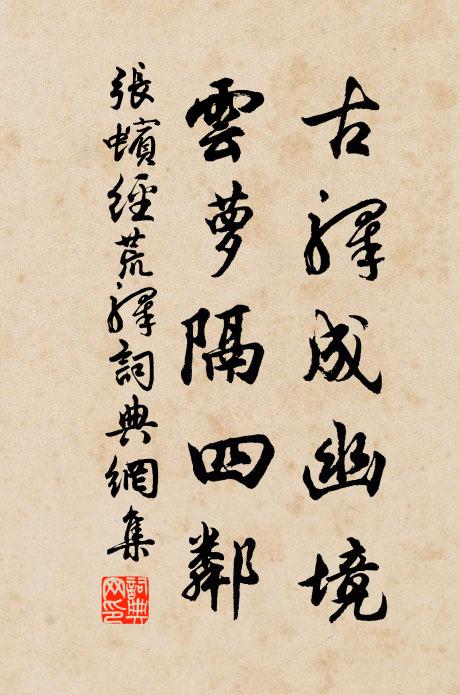 古驛成幽境
雲蘿隔四鄰
張蠙經荒驛詞典網集
詞典
网印